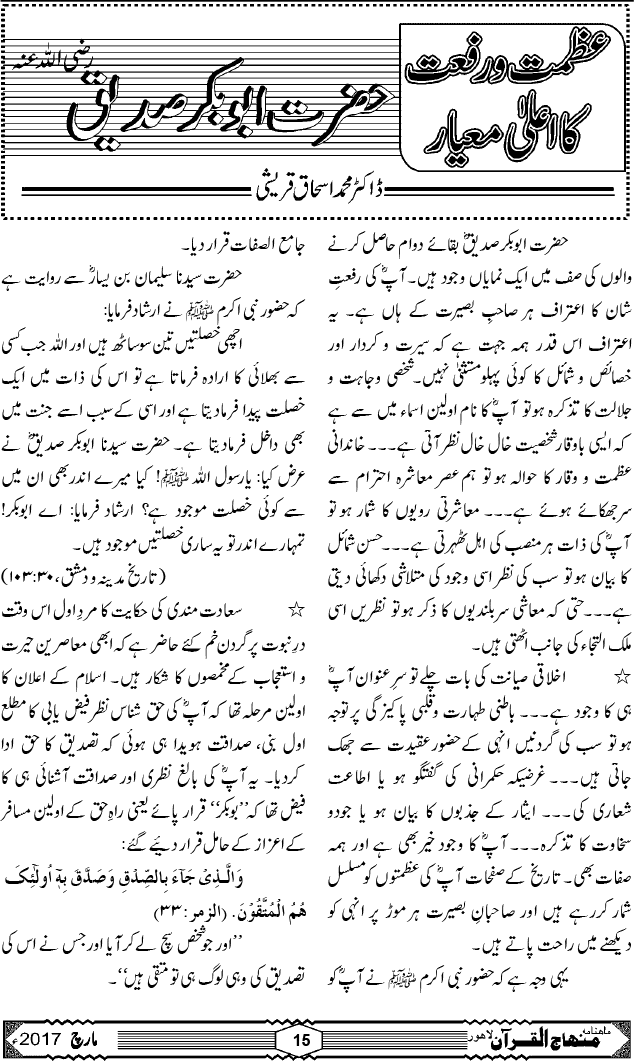 عظمت و رفعت
کا اعلیٰ معیار
حضرت ابوبکر صدیق رضی اللہ عنہ
ڈاکٹر محمد اسحاق قریشی
حضرت ابوبکر صدیقؓ بقائے دوام حاصل کرنے
والوں کی صف میں ایک نمایاں وجود ہیں۔ آپؓ کی رفعتِ
شان کا اعتراف ہر صاحبِ بصیرت کے ہاں ہے۔ یہ
اعتراف اس قدر ہمہ جہت ہے کہ سیرت و کردار اور
خصائص و شمائل کا کوئی پہلو مستثنیٰ نہیں۔ شخصی وجاہت و
جلالت کا تذکرہ ہو تو آپؓ کا نام اولین اسماء میں سے ہے
کہ ایسی باوقار شخصیت خال خال نظر آتی ہے۔۔۔ خاندانی
عظمت و وقار کا حوالہ ہو تو ہم عصر معاشرہ احترام سے
سرجھکائے ہوئے ہے۔۔۔ معاشرتی رویوں کا شمار ہو تو
آپؓ کی ذات ہر منصب کی اہل ٹھہرتی ہے۔۔۔ حسنِ شمائل
کا بیان ہو تو سب کی نظر اسی وجود کی متلاشی دکھائی دیتی
ہے۔۔۔ حتی کہ معاشی سربلندیوں کا ذکر ہو تو نظریں اسی
ملک التجاء کی جانب اٹھتی ہیں۔
☆ اخلاقی صیانت کی بات چلے تو سرِ عنوان آپؓ
ہی کا وجود ہے۔۔۔ باطنی طہارت و قلبی پاکیزگی پر توجہ
ہو تو سب کی گردنیں انہی کے حضور عقیدت سے جھک
جاتی ہیں۔۔۔ غرضیکہ حکمرانی کی گفتگو ہو یا اطاعت
شعاری کی۔۔۔ ایثار کے جذبوں کا بیان ہو یا جود و
سخاوت کا تذکرہ۔۔۔ آپؓ کا وجود خیر بھی ہے اور ہمہ
صفات بھی۔ تاریخ کے صفحات آپؓ کی عظمتوں کو مسلسل
شمار کررہے ہیں اور صاحبانِ بصیرت ہر موڑ پر انہی کو
دیکھنے میں راحت پاتے ہیں۔
یہی وجہ ہے کہ حضور نبی اکرم ﷺ نے آپؓ کو
جامع الصفات قرار دیا۔
حضرت سیدنا سلیمان بن یسارؓ سے روایت ہے
کہ حضور نبی اکرم ﷺ نے ارشاد فرمایا:
اچھی خصلتیں تین سو ساٹھ ہیں اور اللہ جب کسی
سے بھلائی کا ارادہ فرماتا ہے تو اس کی ذات میں ایک
خصلت پیدا فرمادیتا ہے اور اسی کے سبب اسے جنت میں
بھی داخل فرمادیتا ہے۔ حضرت سیدنا ابوبکر صدیقؓ نے
عرض کیا: یارسول اللہ ﷺ! کیا میرے اندر بھی ان میں
سے کوئی خصلت موجود ہے؟ ارشاد فرمایا: اے ابوبکر!
تمہارے اندر تو یہ ساری خصلتیں موجود ہیں۔
(تاریخ مدینہ و دمشق، ۳۰:۱۰۳)
☆ سعادت مندی کی حکایت کا مردِ اول اس وقت
درِ نبوت پر گردن خم کئے حاضر ہے کہ ابھی معاصرین حیرت
و استعجاب کے مخمصوں کا شکار ہیں۔ اسلام کے اعلان کا
اولین مرحلہ تھا کہ آپؓ کی حق شناس نظر فیض یابی کا مطلع
اول بنی، صداقت ہویدا ہی ہوئی کہ تصدیق کا حق ادا
کردیا۔ یہ آپؓ کی بالغ نظری اور صداقت آشنائی ہی کا
فیض تھا کہ ’’بوبکر‘‘ قرار پائے یعنی راہِ حق کے اولین مسافر
کے اعزاز کے حامل قرار دیئے گئے:
وَالَّذِیْ جَآءَ بِالصِّدْقِ وَصَدَّقَ بِهٖٓ اُولٰٓئِکَ
هُمُ الْمُتَّقُوْنَ. (الزمر:۳۳)
’’اور جو شخص سچ لے کر آیا اور جس نے اس کی
تصدیق کی وہی لوگ ہی تو متقی ہیں‘‘۔
ماہنامہ منہاج القرآن لاہور
15
مارچ 2017ء